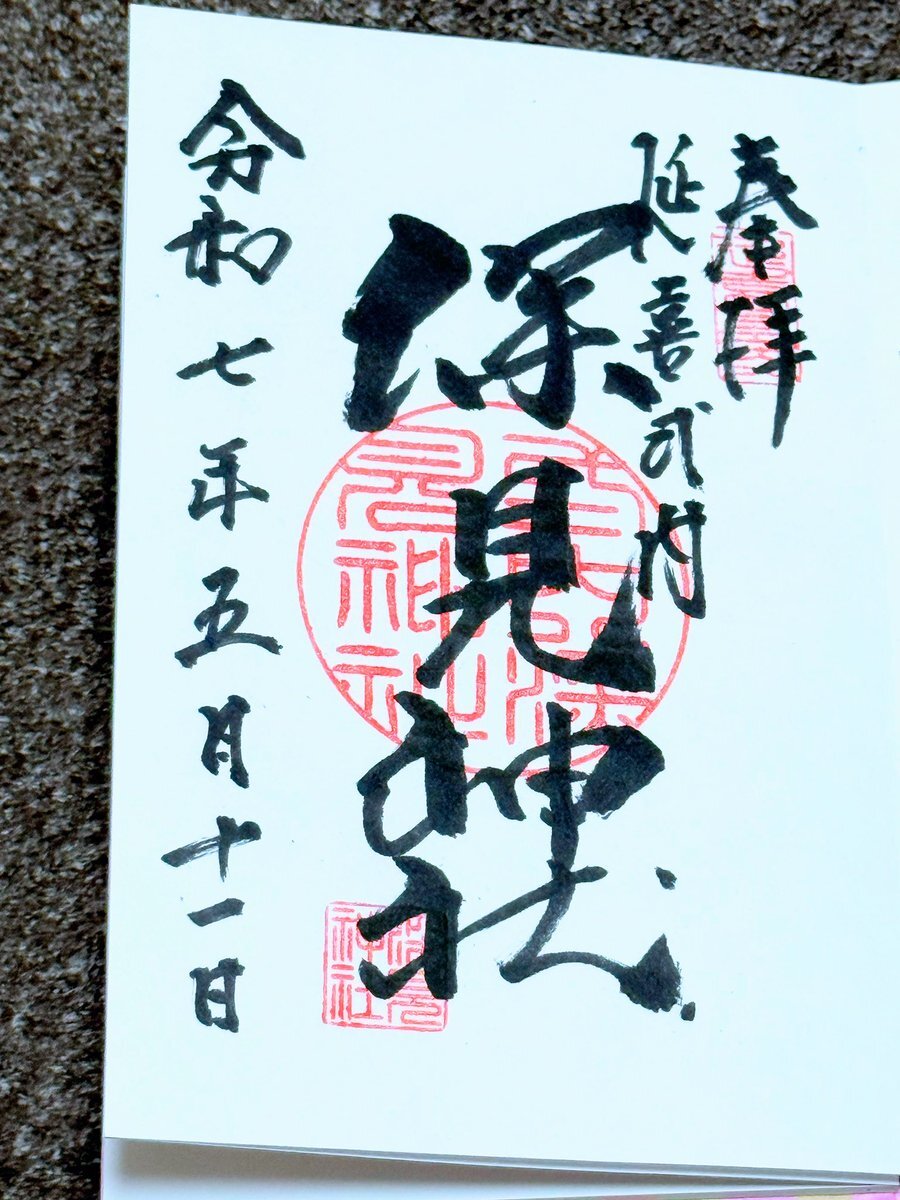 奉拝
延喜式内
深見神社
深見神社
令和七年五月十一日